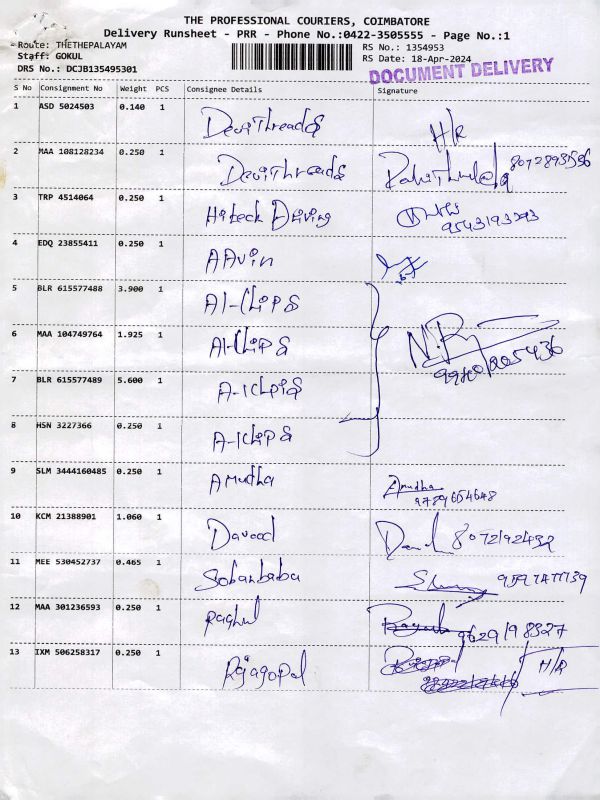 THE PROFESSIONAL COURIERS, COIMBATORE
Delivery Runsheet - PRR - Phone No.:0422-3505555 - Page No.:1
Route: THETHEPALAYAM RS No.: 1354953
Staff: GOKUL RS Date: 18-Apr-2024
DRS No.: DCJB135495301 DOCUMENT DELIVERY
S No Consignment No Weight PCS Consignee Details Signature
1 ASD 5024503 0.140 1 DeviThreads H/R
2 MAA 108128234 0.250 1 DeviThreads
3 TRP 4514064 0.250 1 Hiteck Driving
9543193293
4 EDQ 23855411 0.250 1 AAvin
5 BLR 615577488 3.900 1 A1-CLIPS
6 MAA 104749764 1.925 1 A1-CLIPS N.R
7 BLR 615577489 5.600 1 A-1CLIPS
8 HSN 3227366 0.250 1 A-1CLIPS
9 SLM 3444160485 0.250 1 Amudha Amudha
9789654648
10 KCM 21388901 1.060 1 Davood 8072192432
11 MEE 530452737 0.465 1 Sobanbabu
12 MAA 301236593 0.250 1 Raghul 9629198327
13 IXM 506258317 0.250 1 Rajagopal H/R